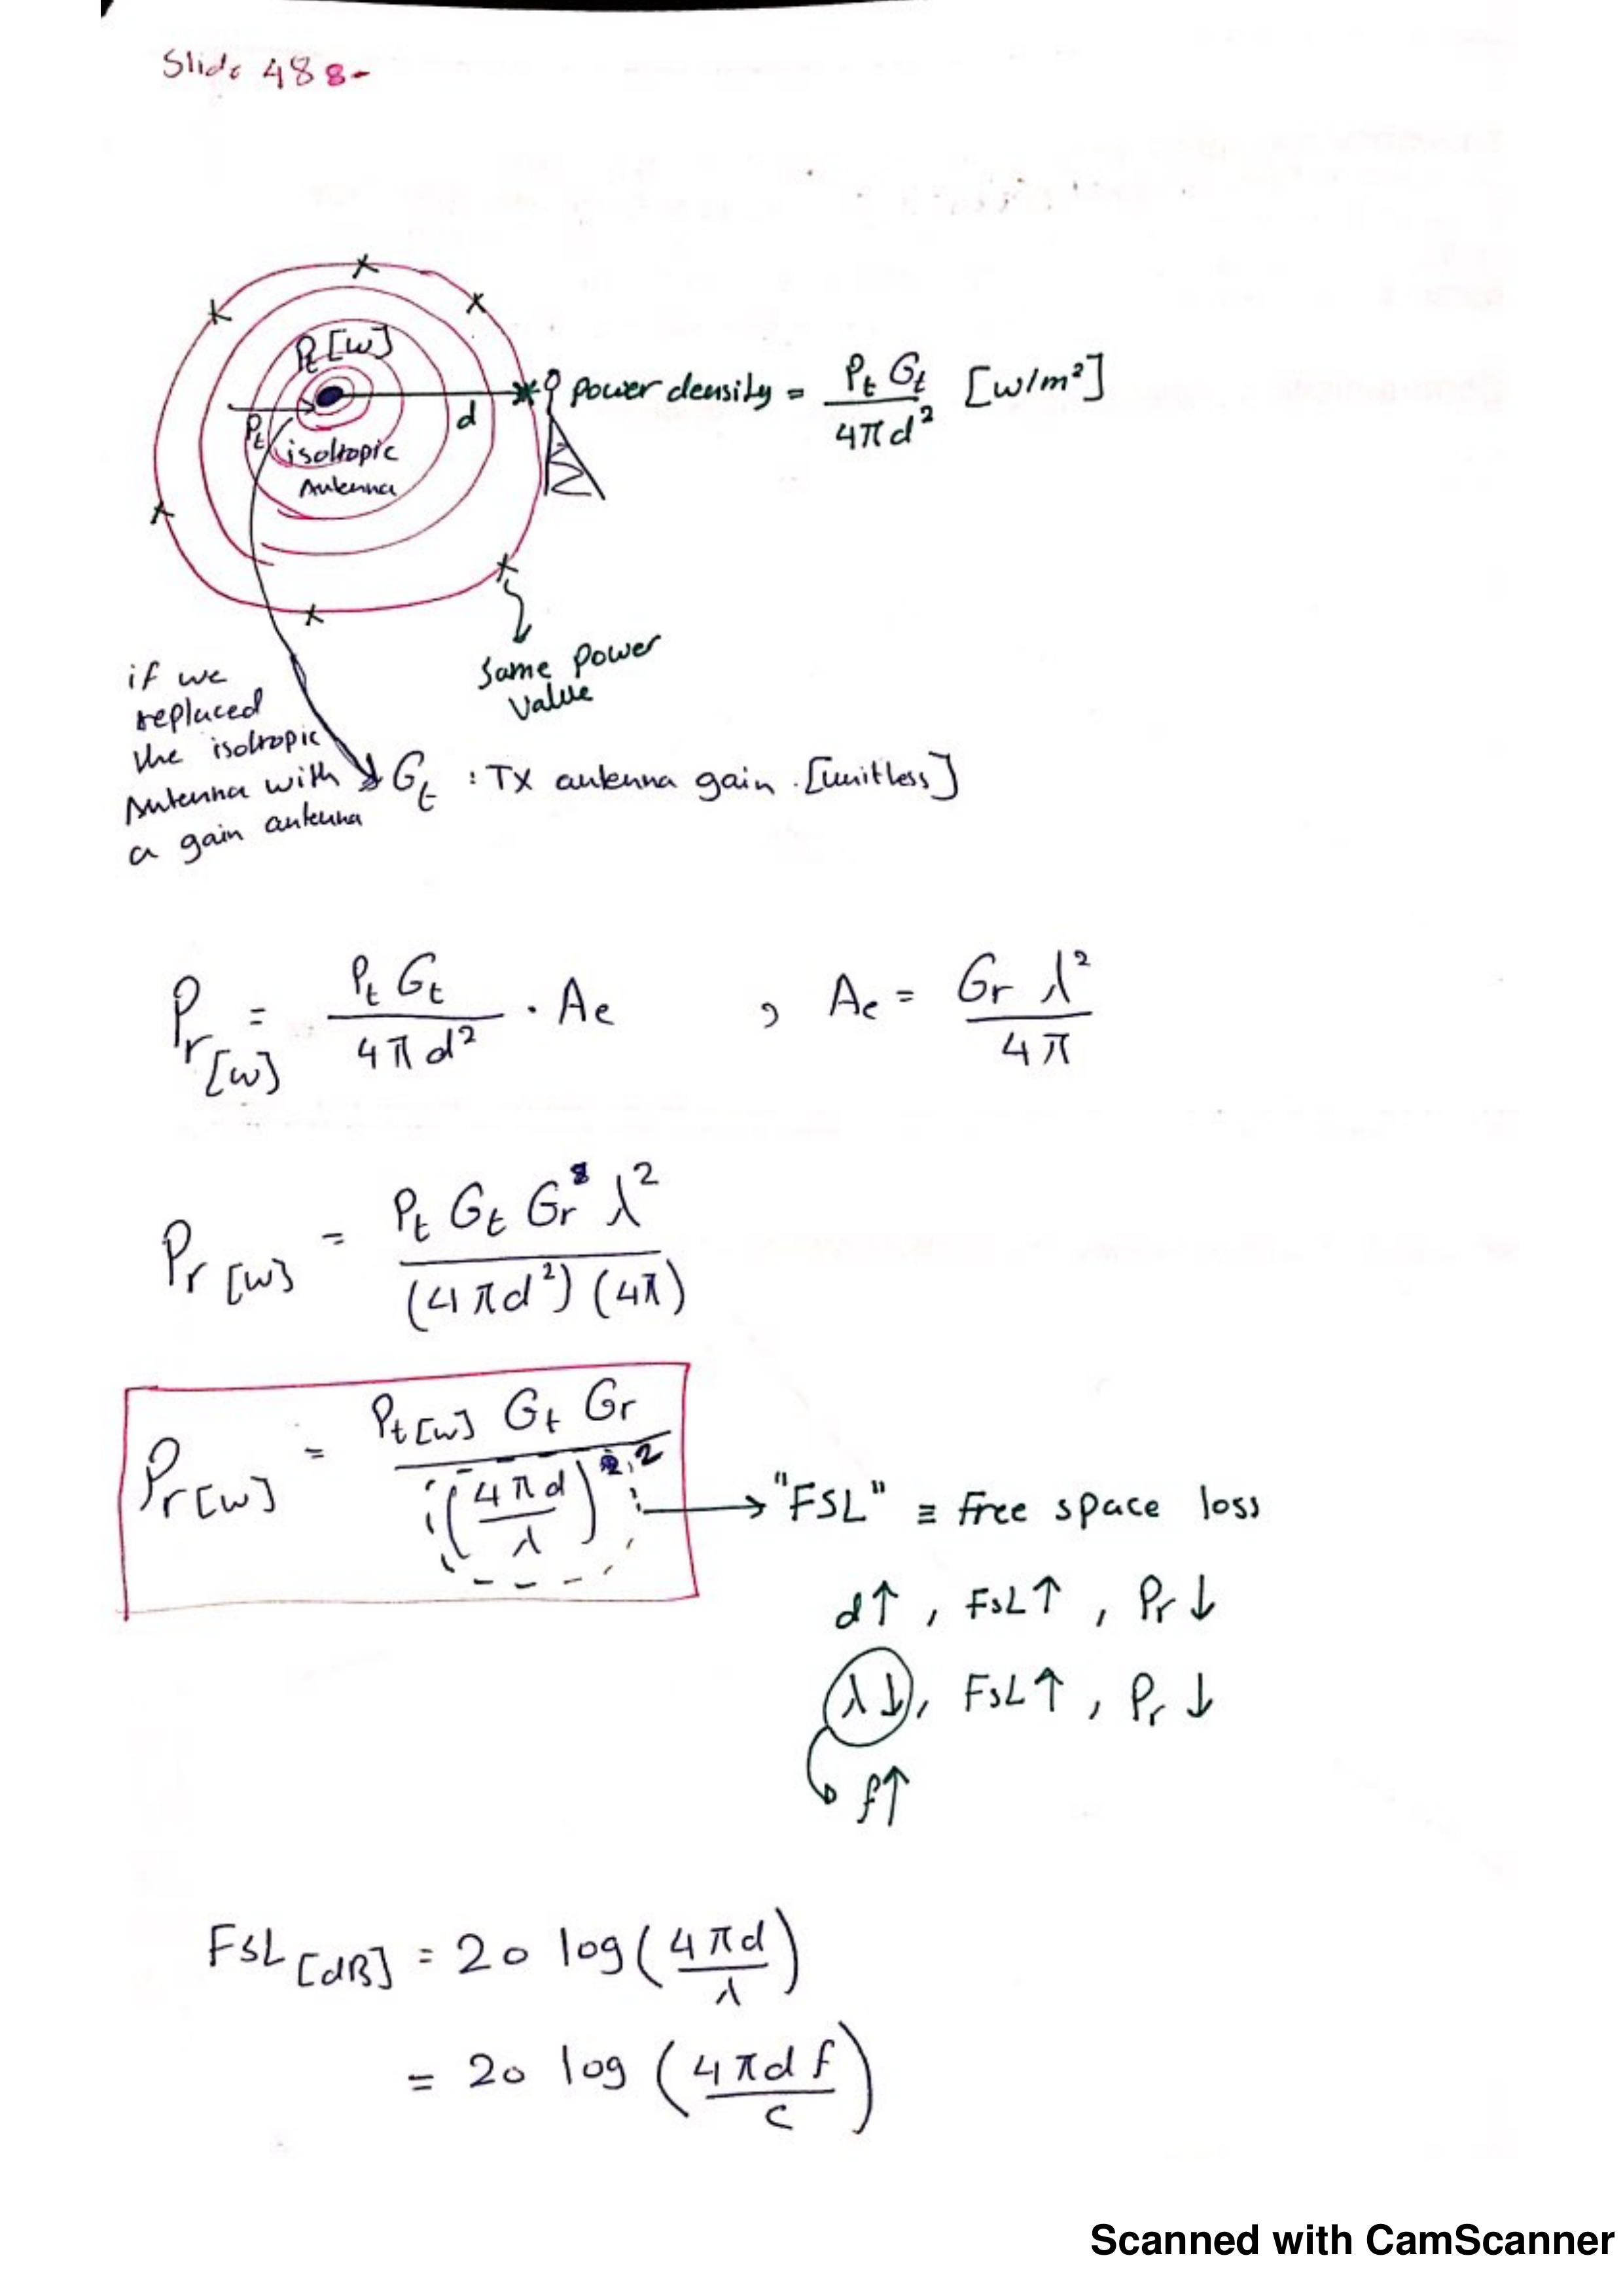 Slide 48 :-
Pt [w]
Pt
isoltopic
Antenna
d
power density = Pt Gt / 4πd² [w/m²]
Same power
value
if we
replaced
the isoltropic
Antenna with
a gain antenna
Gt : TX antenna gain. [unitless]
Pr [w] = Pt Gt / 4πd² · Ae , Ae = Gr λ² / 4π
Pr [w] = Pt Gt Gr λ² / (4πd²) (4π)
Pr [w] = Pt [w] Gt Gr / (4πd / λ)²
"FSL" ≡ free space loss
d↑ , FSL↑ , Pr ↓
λ↓, FSL↑ , Pr ↓
f↑
FSL [dB] = 20 log (4πd / λ)
= 20 log (4πdf / c)
Scanned with CamScanner